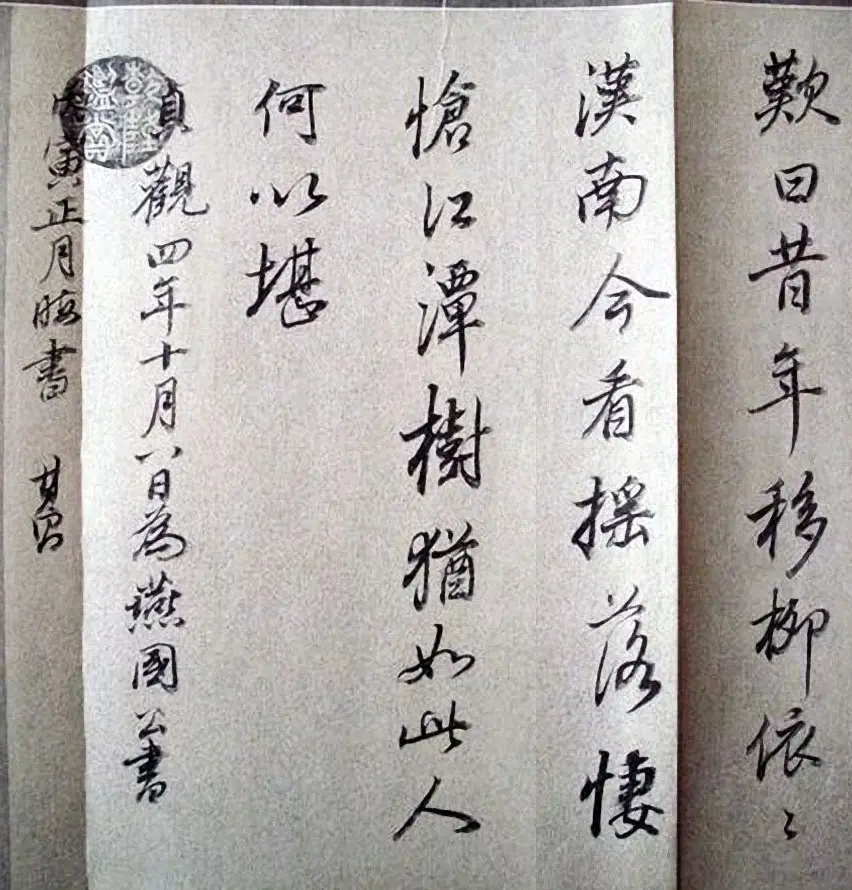 歎曰昔年移柳依〻
漢南今看搖落悽
愴江潭樹猶如此人
何以堪
貞觀四年十月八日為燕國公書
丙寅正月晦書